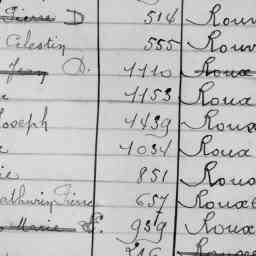 Pierre D 514 Rouv
Celestin 555 Rouv
Jean D. 1110 Roux
1153 Roux
Joseph 1439 Roux
1034 Roux
ie 851 Roux
athurin Pierre 657 Roux
Marie L. 939 Roux